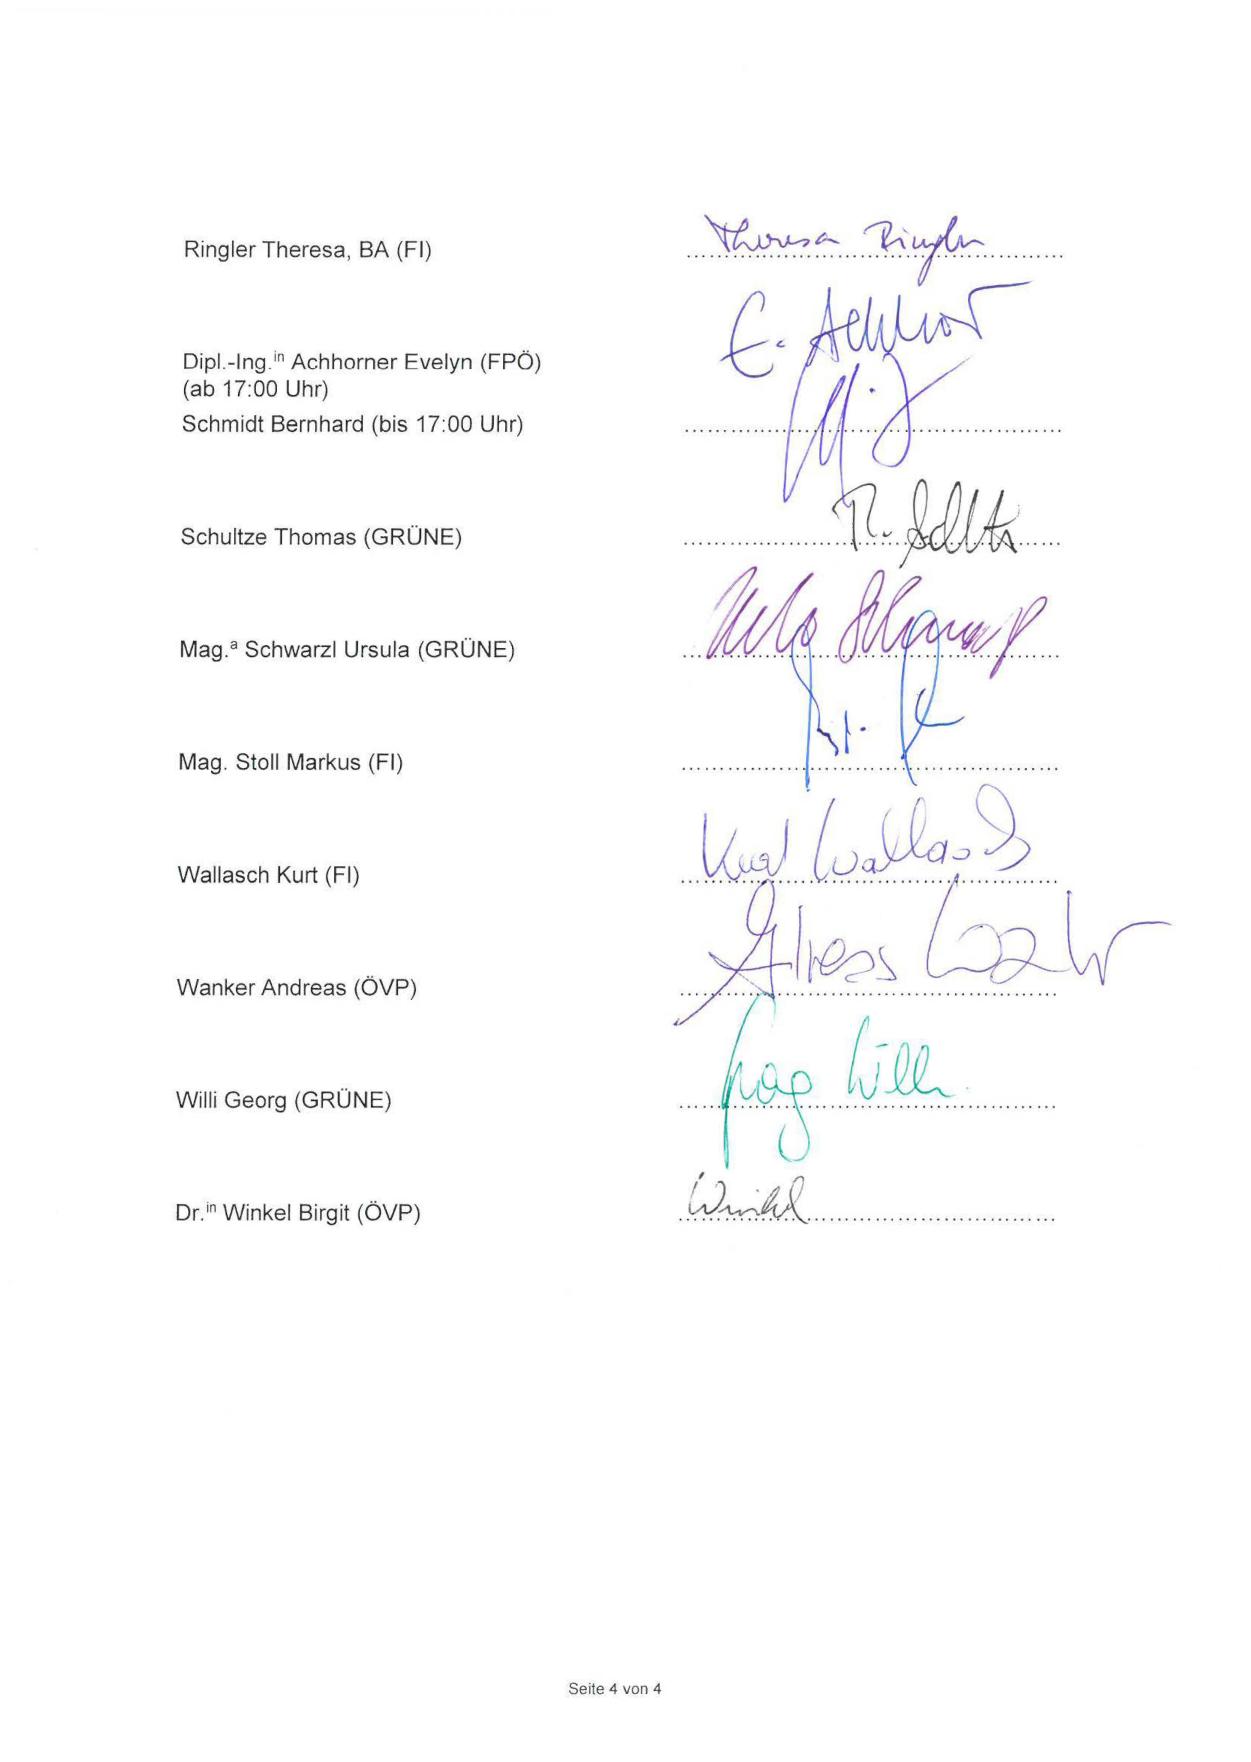 Ringler Theresa, BA (FI) Theresa Ringler
E. Achhor
Dipl.-Ng.in Achhorner Evelyn (FPÖ)
(ab 17:00 Uhr)
Schmidt Bernhard (bis 17:00 Uhr)
Schultze Thomas (GRÜNE)
Mag.a Schwarzl Ursula (GRÜNE)
Mag. Stoll Markus (FI)
Wallasch Kurt (FI) Kurt Wallasch
Wanker Andreas (ÖVP)
Willi Georg (GRÜNE) Georg Willi
Dr.in Winkel Birgit (ÖVP) Winkel
Seite 4 von 4